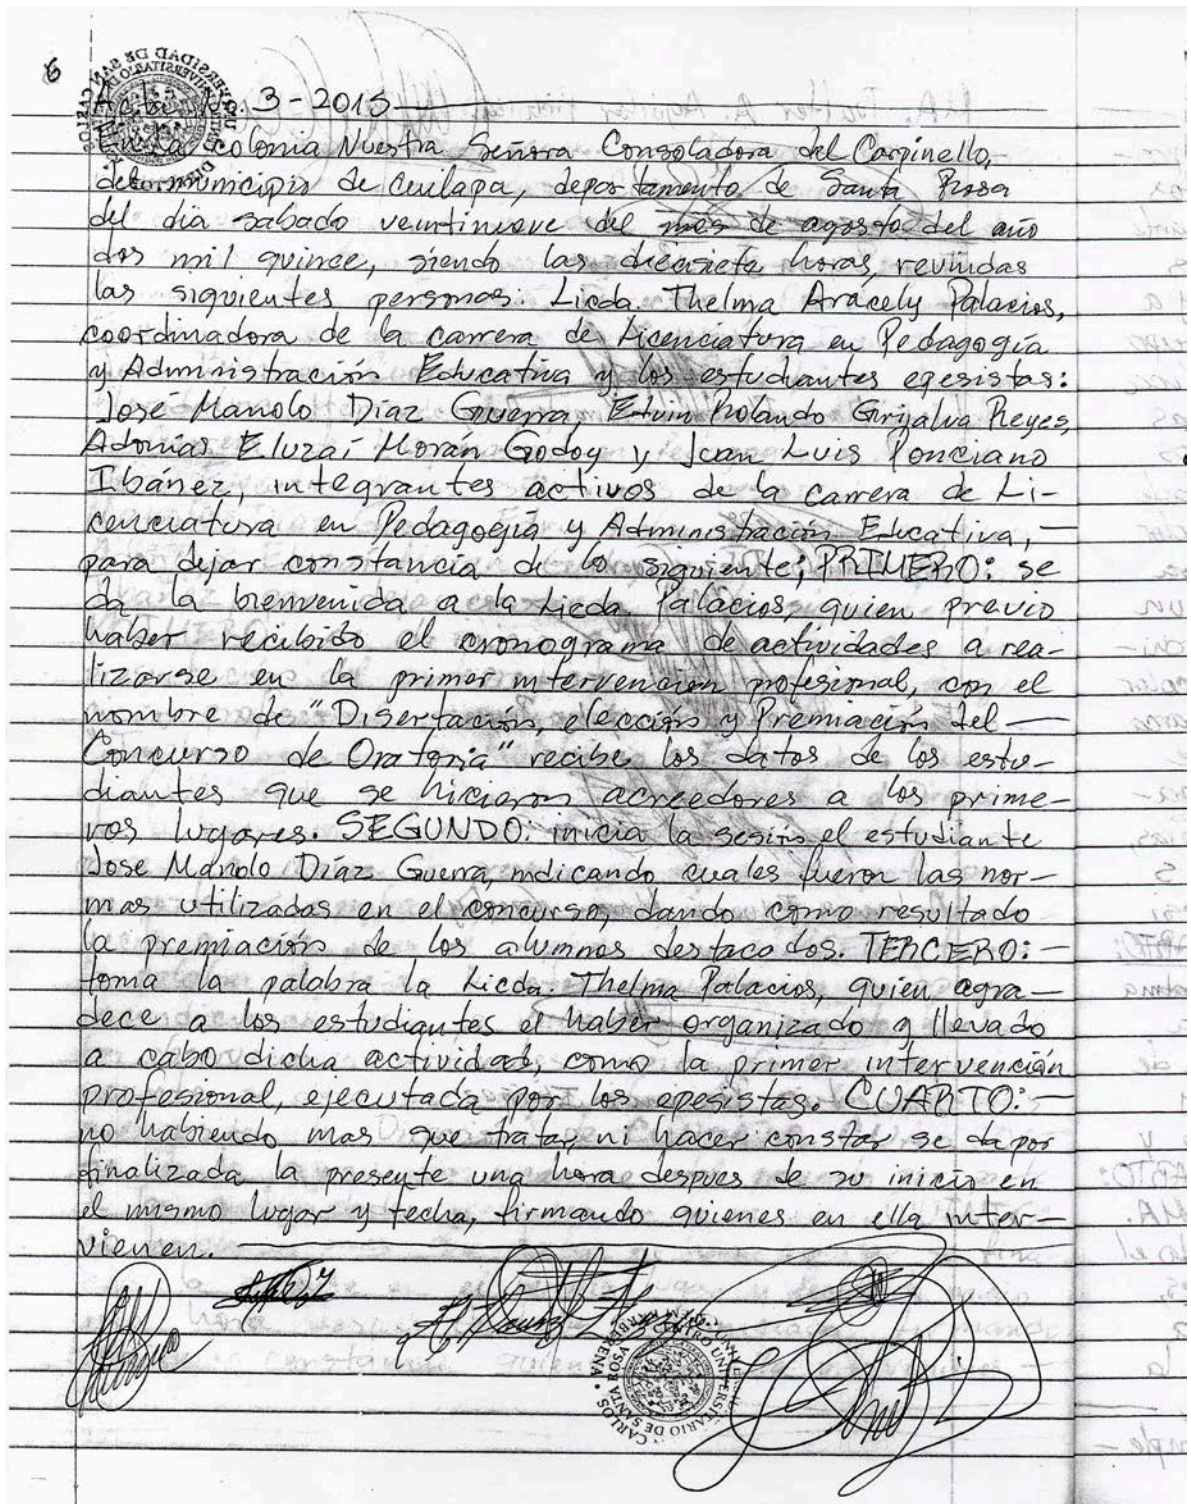 6
Acta No. 3-2015
En la Colonia Nuestra Señora Consoladora del Carpinello,
del municipio de Cuilapa, departamento de Santa Rosa
del dia sabado veintinueve del mes de agosto del año
dos mil quince, siendo las diecisiete horas, reunidas
las siguientes personas: Licda. Thelma Aracely Palacios,
coordinadora de la carrera de Licenciatura en Pedagogía
y Administración Educativa y los estudiantes epesistas:
José Manolo Díaz Guerra, Elvin Rolando Grijalva Reyes,
Adonías Eluzaí Morán Godoy y Juan Luis Ponciano
Ibánez, integrantes activos de la carrera de Li-
cenciatura en Pedagogía y Administración Educativa,—
para dejar constancia de lo siguiente; PRIMERO: se
da la bienvenida a la Licda. Palacios, quien previo
haber recibido el cronograma de actividades a rea-
lizarse en la primer intervención profesional, con el
nombre de "Disertación, elección y Premiación del—
Concurso de Oratoria" recibe los datos de los estu-
diantes que se hicieron acreedores a los prime-
ros lugares. SEGUNDO: inicia la sesión el estudiante
Jose Manolo Díaz Guerra, indicando cuales fueron las nor-
mas utilizadas en el concurso, dando como resultado
la premiación de los alumnos destacados. TERCERO:—
toma la palabra la Licda. Thelma Palacios, quien agra-
dece a los estudiantes el haber organizado y llevado
a cabo dicha actividad, como la primer intervención
profesional, ejecutada por los epesistas. CUARTO:—
no habiendo mas que tratar, ni hacer constar se da por
finalizada la presente una hora despues de su inicio en
el mismo lugar y fecha, firmando quienes en ella inter-
vienen.